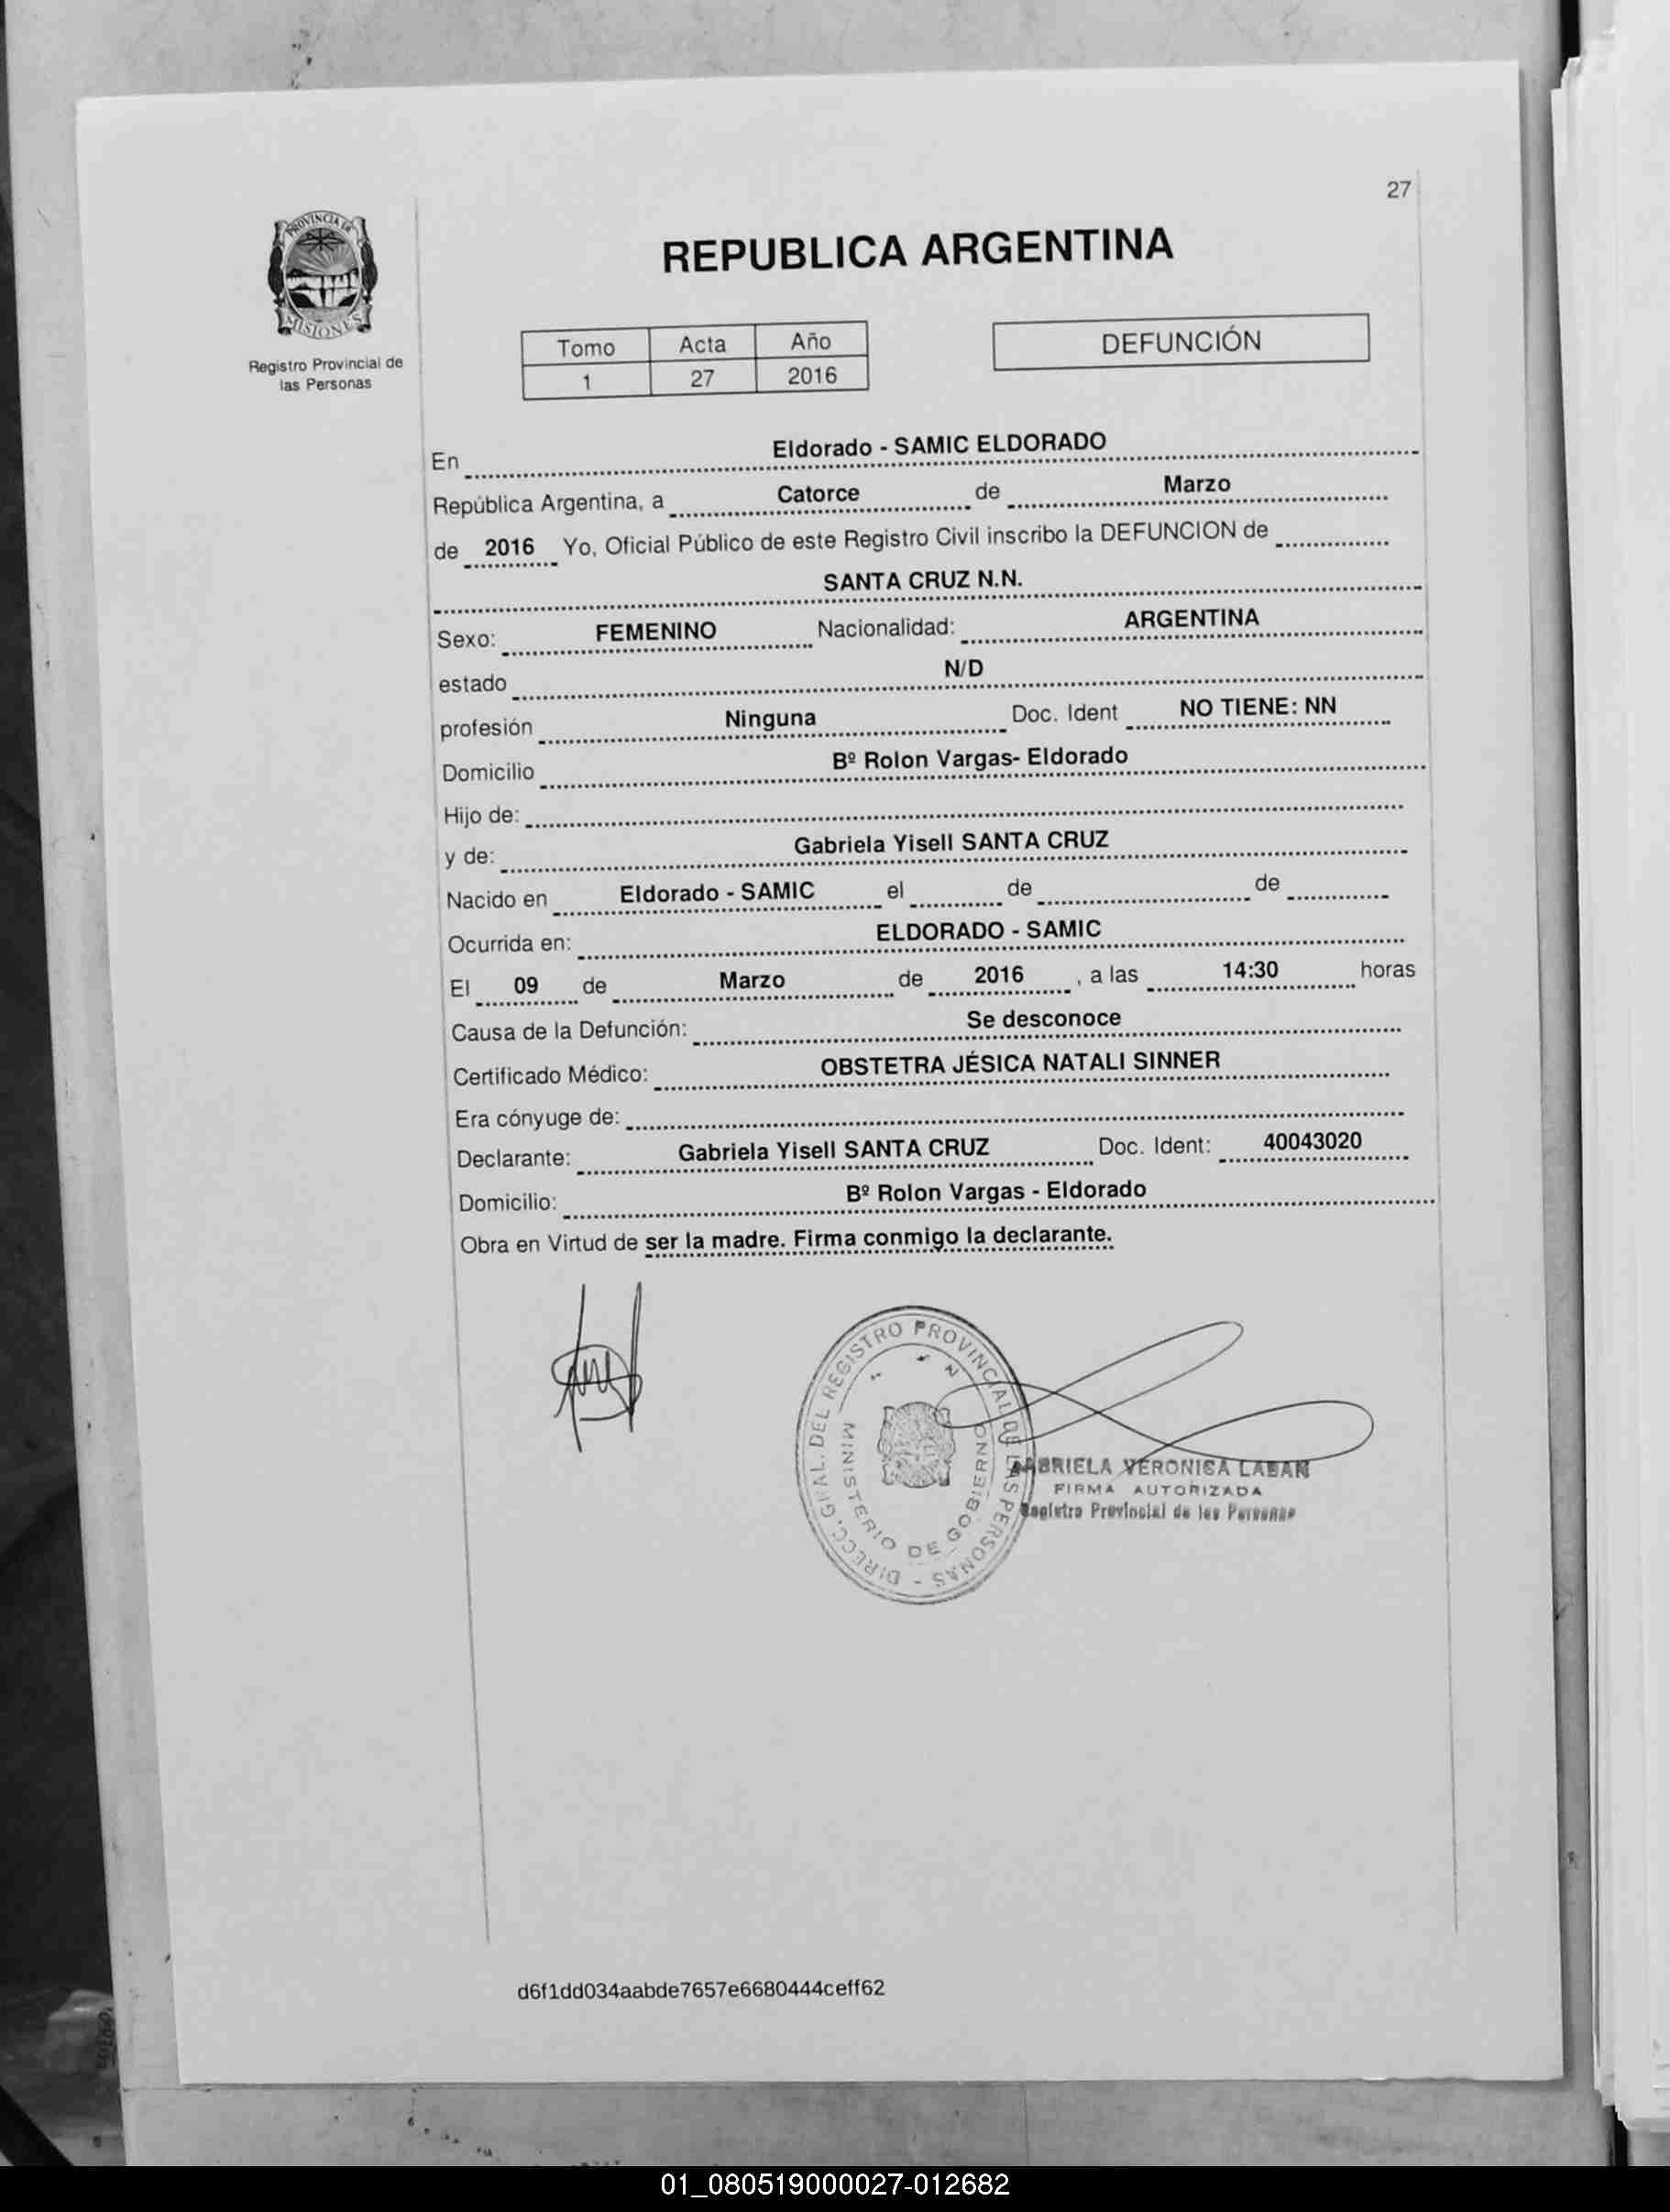 27
PROVINCIA DE
MISIONES
Registro Provincial de
las Personas
REPUBLICA ARGENTINA
Tomo Acta Año
1 27 2016
DEFUNCIÓN
En Eldorado - SAMIC ELDORADO
República Argentina, a Catorce de Marzo
de 2016 Yo, Oficial Público de este Registro Civil inscribo la DEFUNCION de
SANTA CRUZ N.N.
Sexo: FEMENINO Nacionalidad: ARGENTINA
estado N/D
profesión Ninguna Doc. Ident NO TIENE: NN
Domicilio Bº Rolon Vargas- Eldorado
Hijo de:
y de: Gabriela Yisell SANTA CRUZ
Nacido en Eldorado - SAMIC el de de
Ocurrida en: ELDORADO - SAMIC
El 09 de Marzo de 2016 , a las 14:30 horas
Causa de la Defunción: Se desconoce
Certificado Médico: OBSTETRA JÉSICA NATALI SINNER
Era cónyuge de:
Declarante: Gabriela Yisell SANTA CRUZ Doc. Ident: 40043020
Domicilio: Bº Rolon Vargas - Eldorado
Obra en Virtud de ser la madre. Firma conmigo la declarante.
DIRECC. GRAL. DEL REGISTRO PROVINCIAL DE LAS PERSONAS -
MINISTERIO DE GOBIERNO
GABRIELA VERONICA LABAN
FIRMA AUTORIZADA
Registro Provincial de las Personas
d6f1dd034aabde7657e6680444ceff62
01_080519000027-012682